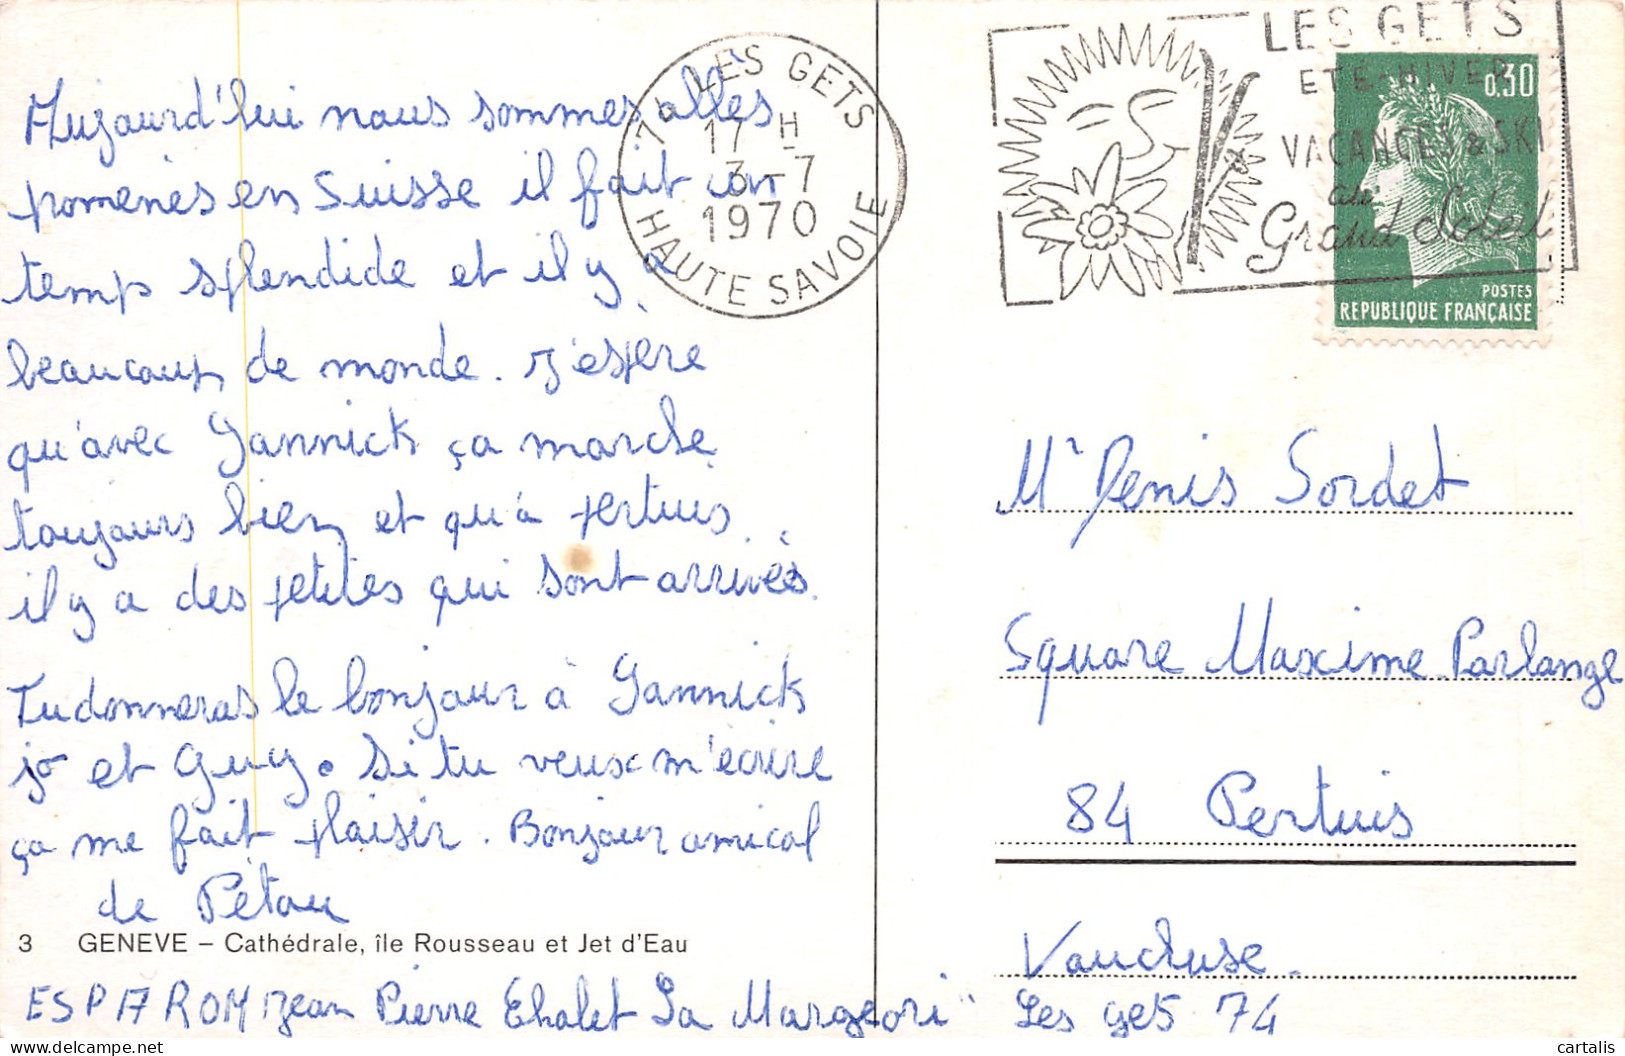 Aujourd'hui nous sommes allés
promenés en Suisse il fait un
temps splendide et il y a
beaucoup de monde. J'espère
qu'avec Yannick ça marche
toujours bien et qu'à pertuis
il y a des petites qui sont arrivés.
Tu donneras le bonjour à Yannick
jo et Guy. Si tu veux m'écrire
ça me fait plaisir. Bonjour amical
de Pétau
3 GENEVE – Cathédrale, île Rousseau et Jet d'Eau
74 LES GETS
17 H
3 - 7
1970
HAUTE SAVOIE
LES GETS
ETE - HIVER
VACANCES & SKI
au
Grand Soleil
0,30
POSTES
REPUBLIQUE FRANÇAISE
Mr Denis Sordet
Square Maxime Parlange
84 Pertuis
Vaucluse.
Jean Pierre Chalet La Margeori" Les gets 74
cartalis